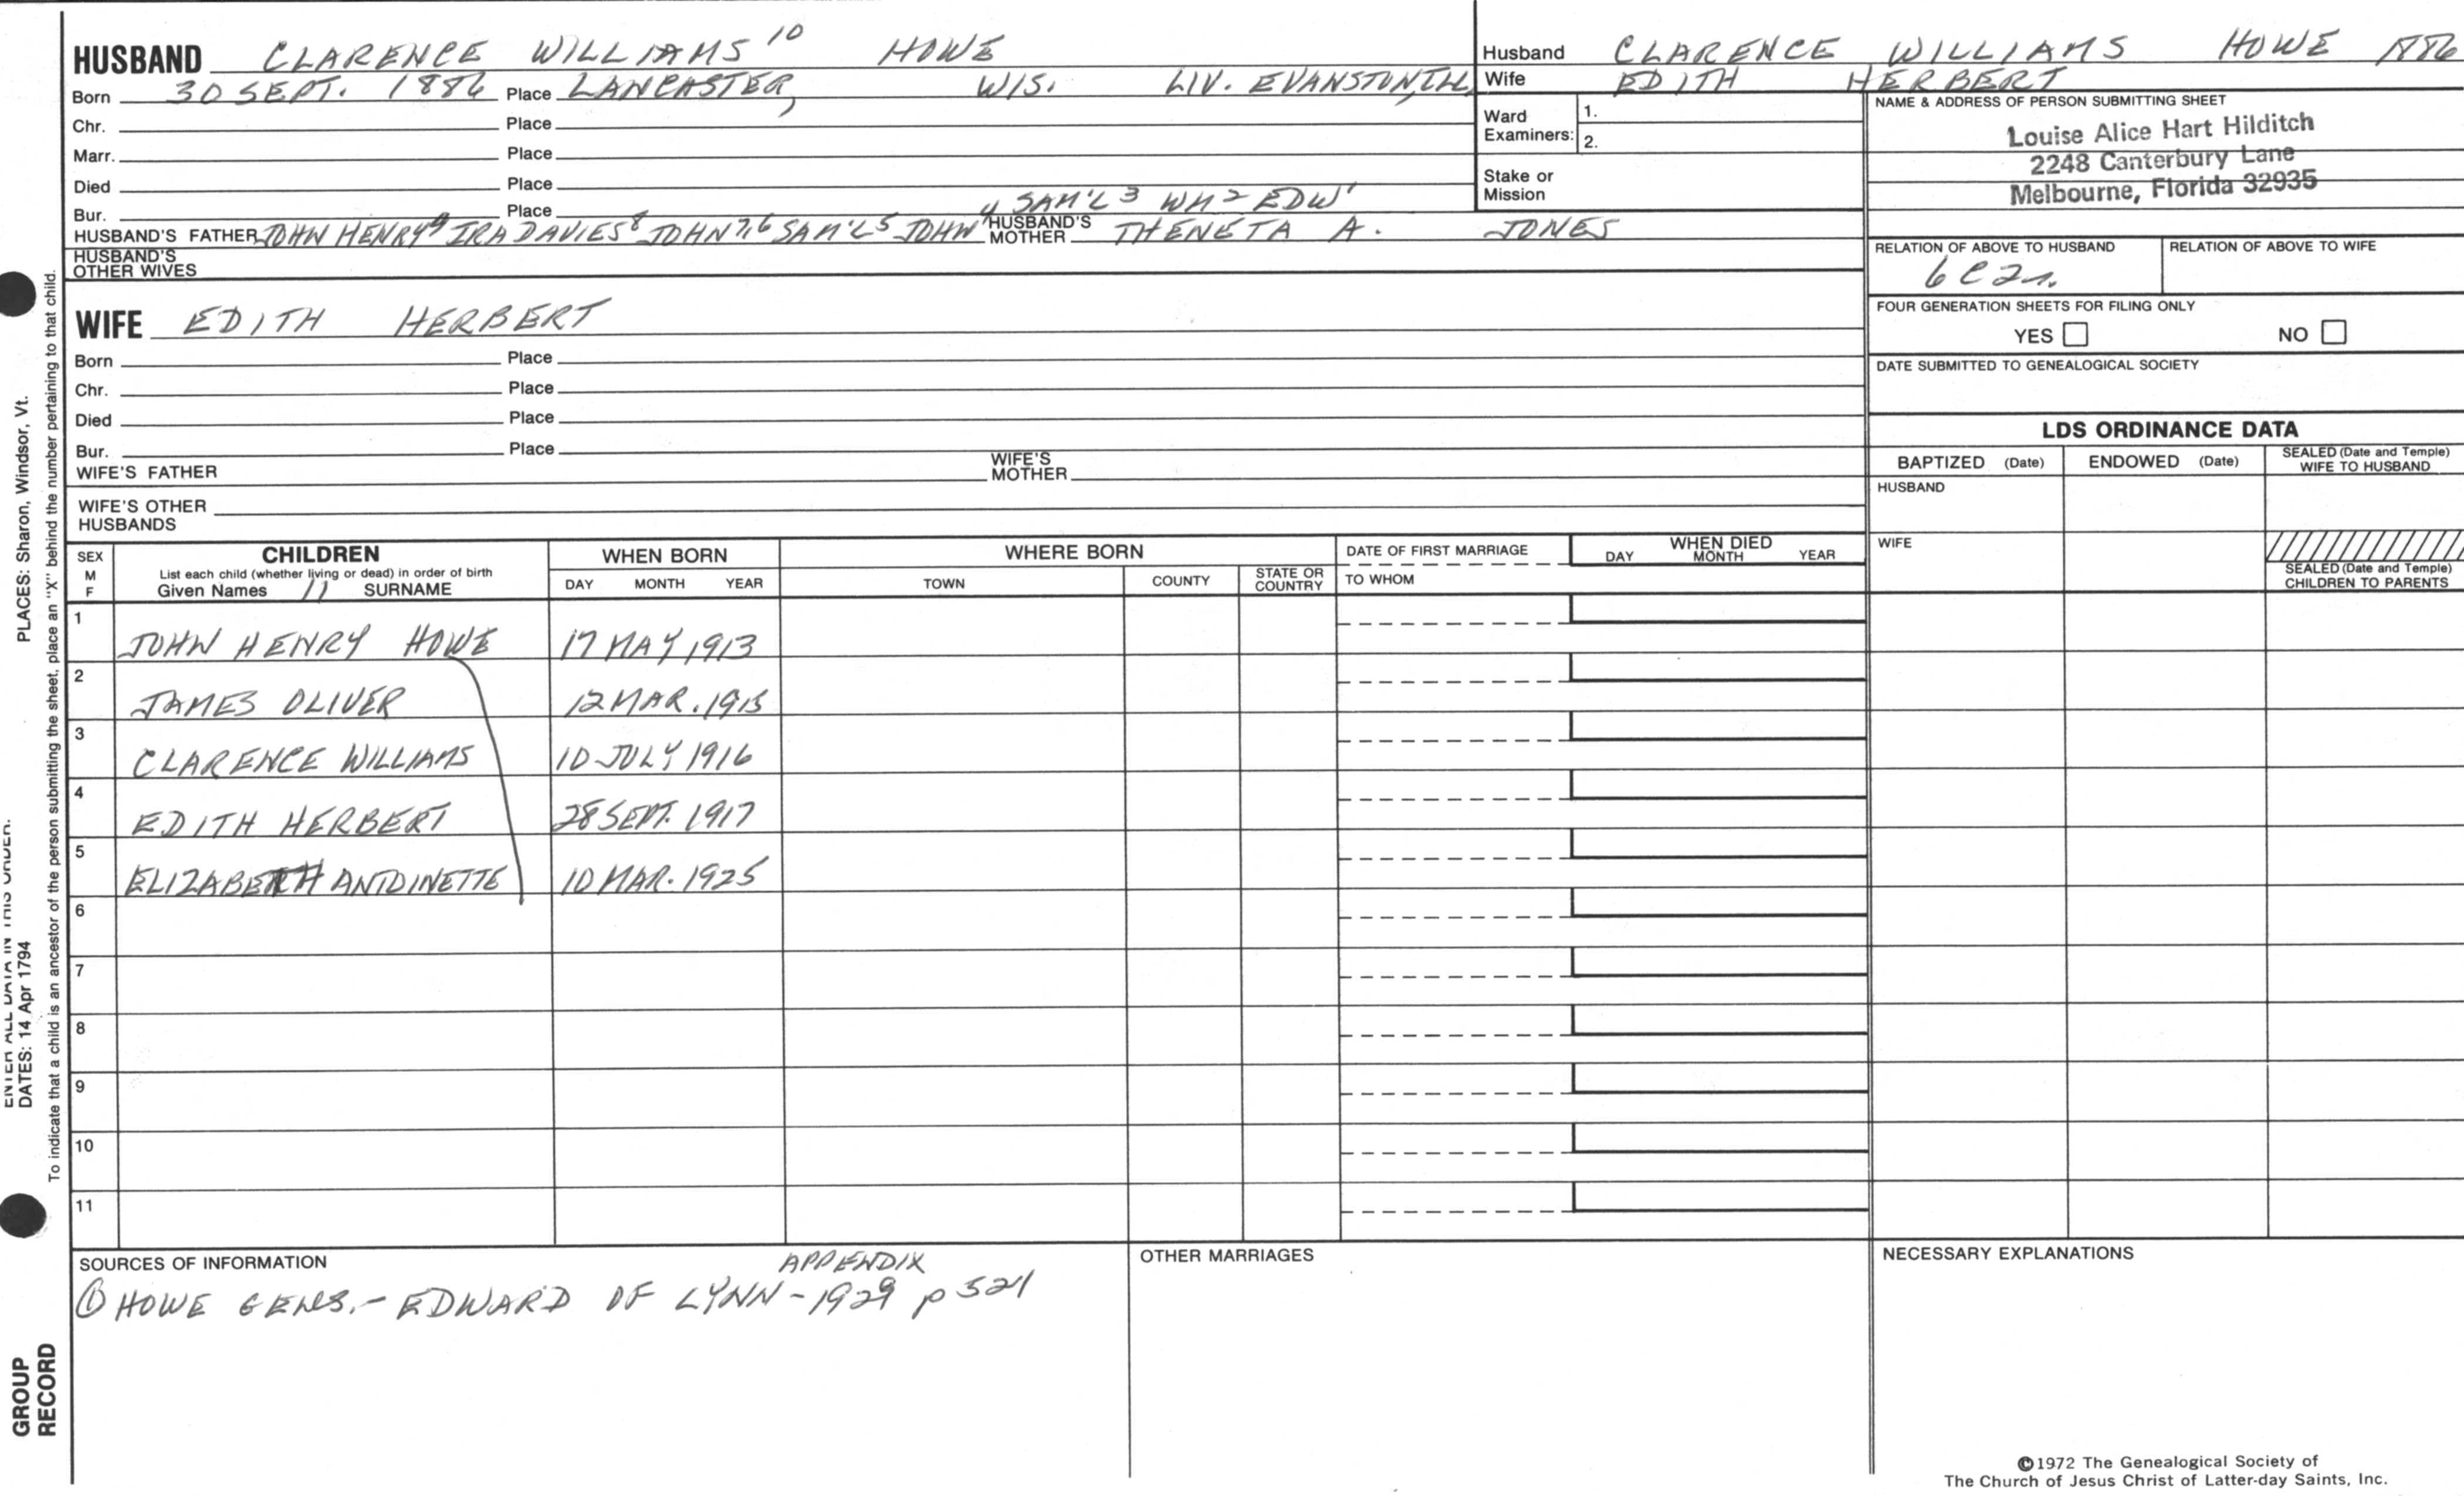 HUSBAND CLARENCE WILLIAMS 10 HOWE
Born 30 SEPT. 1886 Place LANCASTER, WIS. LIV. EVANSTON, ILL
Chr. Place
Marr. Place
Died Place
Bur. Place 4 SAM'L 3 WM 2 EDW 1
HUSBAND'S FATHER JOHN HENRY 9 IRA DAVIES 8 JOHN 7,6 SAM'L 5 JOHN HUSBAND'S MOTHER THENETA A. JONES
HUSBAND'S OTHER WIVES
Husband CLARENCE WILLIAMS HOWE 1886
Wife EDITH HERBERT
Ward Examiners: 1.
2.
Stake or Mission
NAME & ADDRESS OF PERSON SUBMITTING SHEET
Louise Alice Hart Hilditch
2248 Canterbury Lane
Melbourne, Florida 32935
RELATION OF ABOVE TO HUSBAND RELATION OF ABOVE TO WIFE
6 C 2r.
FOUR GENERATION SHEETS FOR FILING ONLY
YES NO
DATE SUBMITTED TO GENEALOGICAL SOCIETY
WIFE EDITH HERBERT
Born Place
Chr. Place
Died Place
Bur. Place
WIFE'S FATHER WIFE'S MOTHER
WIFE'S OTHER HUSBANDS
LDS ORDINANCE DATA
BAPTIZED (Date) ENDOWED (Date) SEALED (Date and Temple) WIFE TO HUSBAND
HUSBAND
WIFE
SEALED (Date and Temple) CHILDREN TO PARENTS
SEX M F
CHILDREN
List each child (whether living or dead) in order of birth
Given Names 11 SURNAME
WHEN BORN
DAY MONTH YEAR
WHERE BORN
TOWN COUNTY STATE OR COUNTRY
DATE OF FIRST MARRIAGE
TO WHOM
WHEN DIED
DAY MONTH YEAR
1 JOHN HENRY HOWE 17 MAY 1913
2 JAMES OLIVER 12 MAR. 1915
3 CLARENCE WILLIAMS 10 JULY 1916
4 EDITH HERBERT 28 SEPT. 1917
5 ELIZABETH ANTOINETTE 10 MAR. 1925
6
7
8
9
10
11
SOURCES OF INFORMATION
APPENDIX
① HOWE GENS. - EDWARD OF LYNN - 1929 p 321
OTHER MARRIAGES
NECESSARY EXPLANATIONS
©1972 The Genealogical Society of
The Church of Jesus Christ of Latter-day Saints, Inc.
PLACES: Sharon, Windsor, Vt.
ENTER ALL DATA IN THIS ORDER:
DATES: 14 Apr 1794
To indicate that a child is an ancestor of the person submitting the sheet, place an "X" behind the number pertaining to that child.
GROUP
RECORD